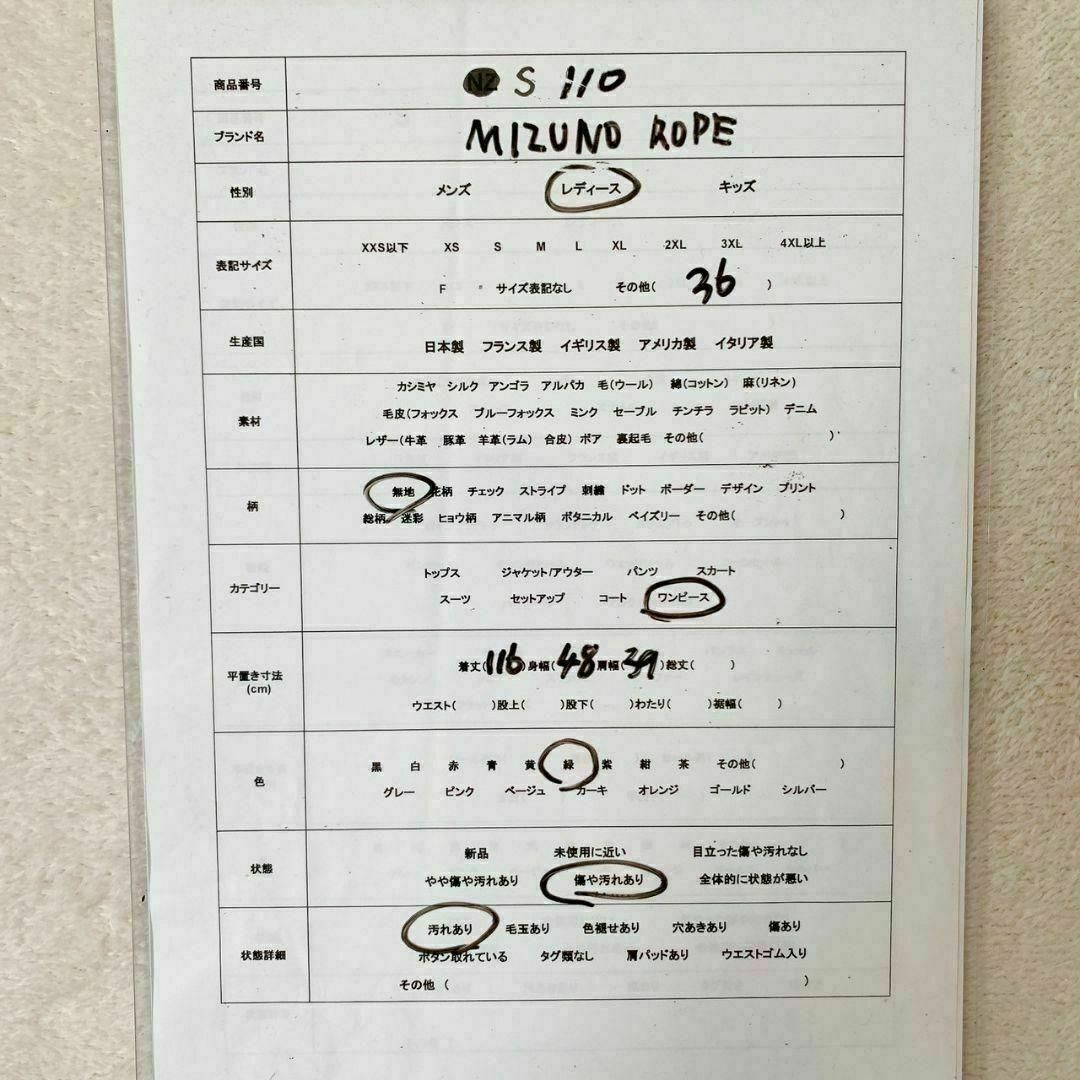 商品番号 NZ S 110
ブランド名 MIZUNO ROPE
性別 メンズ レディース キッズ
XXS以下 XS S M L XL 2XL 3XL 4XL以上
表記サイズ
F " サイズ表記なし その他( 36 )
生産国 日本製 フランス製 イギリス製 アメリカ製 イタリア製
カシミヤ シルク アンゴラ アルパカ 毛(ウール) 綿(コットン) 麻(リネン)
素材 毛皮(フォックス ブルーフォックス ミンク セーブル チンチラ ラビット) デニム
レザー(牛革 豚革 羊革(ラム) 合皮) ボア 裏起毛 その他( )
柄 無地 花柄 チェック ストライプ 刺繍 ドット ボーダー デザイン プリント
総柄 迷彩 ヒョウ柄 アニマル柄 ボタニカル ペイズリー その他( )
トップス ジャケット/アウター パンツ スカート
カテゴリー
スーツ セットアップ コート ワンピース
平置き寸法 着丈(116)身幅(48)肩幅(39)総丈( )
(cm) ウエスト( )股上( )股下( )わたり( )裾幅( )
色 黒 白 赤 青 黄 緑 紫 紺 茶 その他( )
グレー ピンク ベージュ カーキ オレンジ ゴールド シルバー
新品 未使用に近い 目立った傷や汚れなし
状態
やや傷や汚れあり 傷や汚れあり 全体的に状態が悪い
汚れあり 毛玉あり 色褪せあり 穴あきあり 傷あり
状態詳細 ボタン取れている タグ類なし 肩パッドあり ウエストゴム入り
その他 ( )